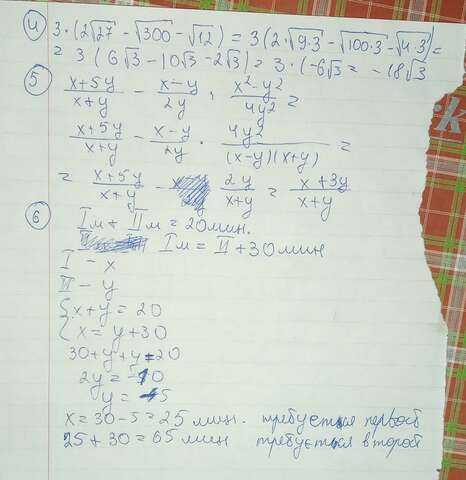 4) 3·(2√27 - √300 - √12) = 3(2·√9·3 - √100·3 - √4·3) =
= 3(6√3 - 10√3 - 2√3) = 3·(-6√3 = -18√3
5) (x+5y)/(x+y) - (x-y)/(2y) : (x²-y²)/(4y²) =
(x+5y)/(x+y) - (x-y)/(2y) · (4y²)/((x-y)(x+y)) =
= (x+5y)/(x+y) - (2y)/(x+y) = (x+3y)/(x+y)
6) Iм + IIм = 20 мин.
Iм = II + 30 мин
I - x
II - y
{x+y = 20
{x = y+30
30+y+y=20
2y = -10
y = -5
x = 30-5 = 25 мин. требуется первой
25+30 = 65 мин требуется второй